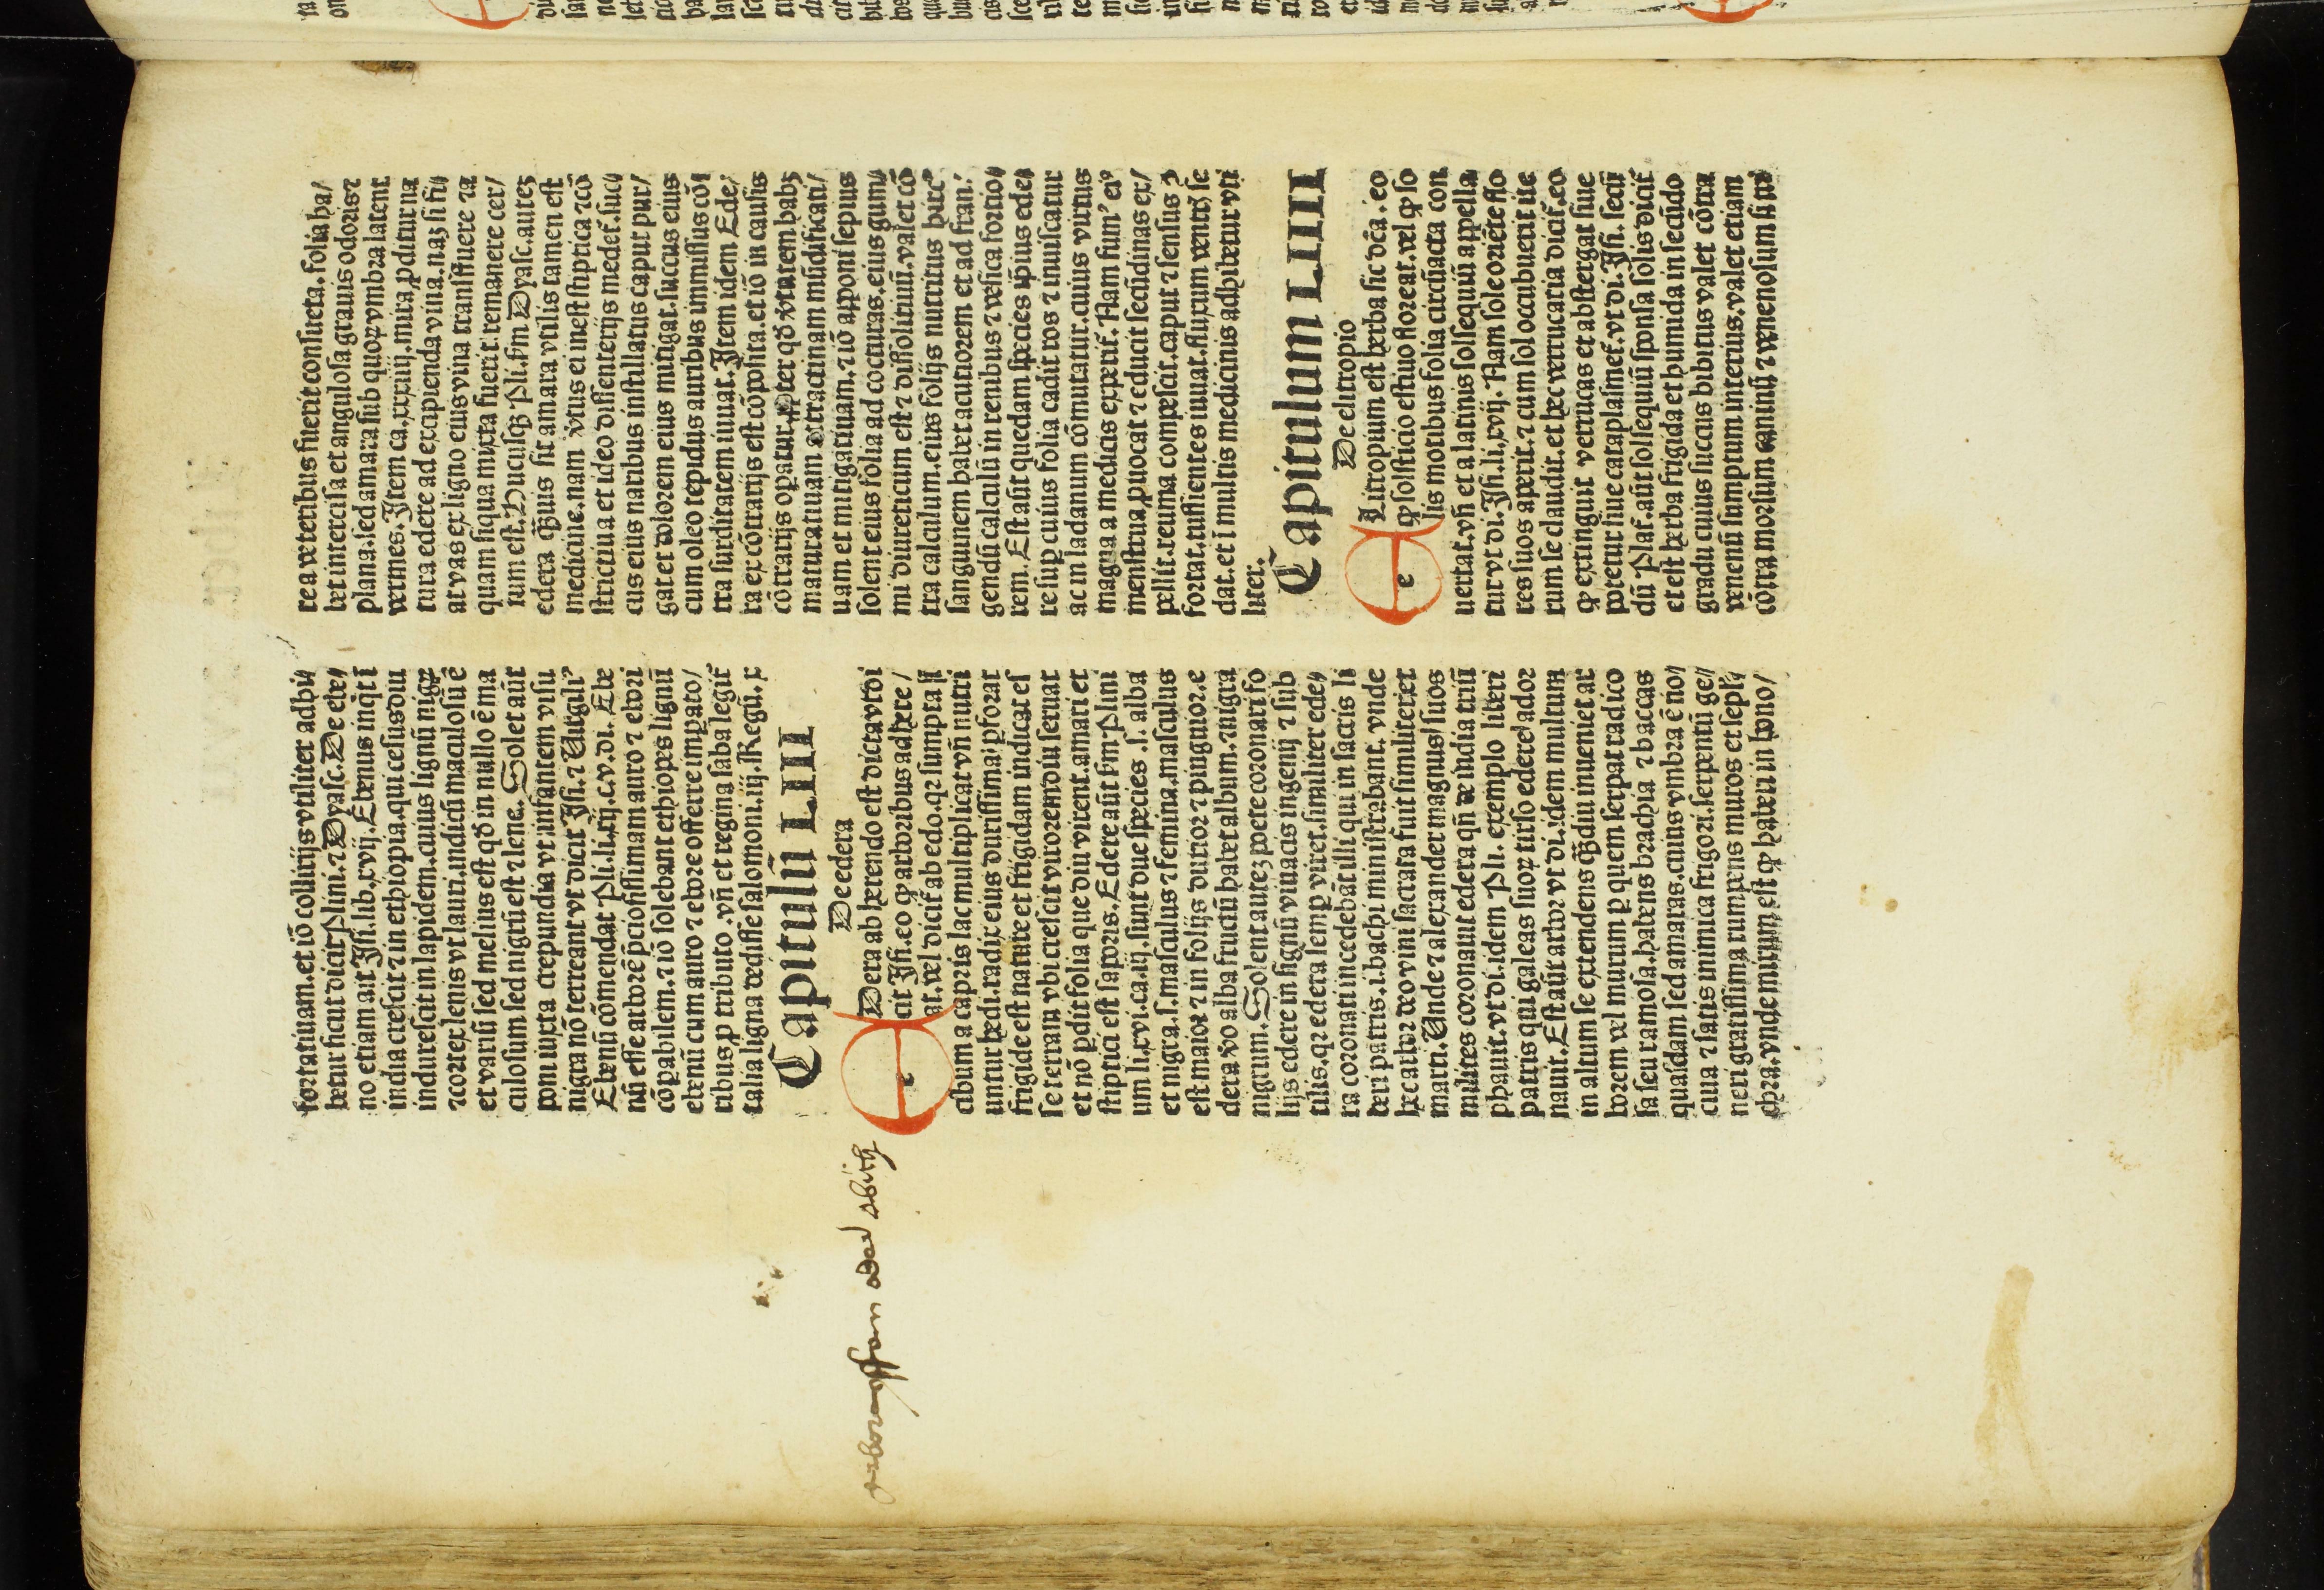 fortatiuam.et iō collirijs vtiliter adhi⸗
betur sicut dicit Plini.⁊ Dyasc. De ebe⸗
no etiam ait Isi.li.xvij. Ebenus inq̇t ī
india crescit ⁊ in ethiopia.qui cesus diu
indurescit in lapidem.cuius lignū nigꝝ
⁊ cortex lenis vt lauri.indicū maculosū ē
et variū sed melius est qd̄ in nullo ē ma
culosum sed nigrū est ⁊ lene. Solet aūt
poni iuxta crepundia vt infantem visu
nigra nō terreant vt dicit Isi. ⁊ Uirgili⁹
Ebenū cōmendat Pli.li.xij.c.v.di. Ebe
nū esse arborē p̄ciosissimam auro ⁊ ebori
cōpabilem.⁊ iō solebant ethiopes lignū
ebenū cum auro ⁊ ebore offerre impato/
ribus ꝓ tributo .vn̄ et regina saba legit̄
talia ligna dedisse salomoni.iij.Regū.x
Capitulū LIII
De edera
EDera ab herendo est dicta vt di
cit Isi.eo ꝙ arboribus adhere/
at.vel dicit̄ ab edo.qꝛ sumpta ī
cibum a capris lac multiplicat vn̄ nutri
untur hedi.radix eius durissima ꝑforat
frigide est nature et frigidam indicat es
se terram vbi crescit virorem diu seruat
et nō ꝑdit folia que diu virent.amari et
stiptici est saporis. Edere aūt s̄m Plini
um li.xvi.ca.ij.sunt due species .s. alba
et nigra.s.masculus ⁊ femina.masculus
est maior ⁊ in folijs durior ⁊ pinguior.e
dera v̄o alba fructū habet album.⁊ nigra
nigrum. Solent autez poete coronari fo
lijs edere in signū viuacis ingenij ⁊ sub
tilis.qꝛ edera semꝑ viret.similiter ede⸗
ra coronati incedebāt illi qui in sacris li
beri patris.i.bachi ministrabant. vnde
hec arbor deo vini sacrata fuit similiter et
marti. Unde ⁊ alexander magnus suos
milites coronauit edera qn̄ de india triū
phauit.vt di.idem Pli. exemplo liberi
patris qui galeas suoꝝ tirso edere ador
nauit. Est aūt arbor vt di.idem multum
in altum se extendens q̄diu inueniet ar
borem vel murum ꝑ quem serpat radico
sa seu ramosa.habens brachia ⁊ baccas
quasdam sed amaras.cuius vmbra ē no⸗
ciua ⁊ satis inimica frigori.serpentū ge⸗
neri gratissima rumpens muros et sepl⸗
chra.vnde mirum est ꝙ haberi in hono/
rea veteribus fuerit consueta. Folia ha/
bet intercisa et angulosa grauis odoris ⁊
plana.sed amara sub quoꝝ vmbra latent
vermes. Item ca.xxiiij. mira ꝓditur na
tura edere ad excipienda vina.naz si fi⸗
at vas ex ligno eius vina transfluere ⁊ a
quam siqua mixta fuerit.remanere cer/
tum est. Hucusqꝫ Pli. s̄m Dyasc. autez
edera q̄uis sit amara vtilis tamen est
medicine.nam v̄tus ei inest stiptica ⁊ cō
strictiua et ideo dissenterijs medet̄.suc⸗
cus eius naribus instillatus caput pur/
gat et dolorem eius mitigat.succus eius
cum oleo tepidus auribus immissus cō⸗
tra surditatem iuuat. Item idem Ede/
ra ex cōtrarijs est cōposita.et iō in causis
cōtrarijs opatur.ꝓpter qd̄ v̄tutem habꝫ
maturatiuam attractiuam mūdificati/
uam et mitigatiuam.⁊ iō apponi sepius
solent eius folia ad cocturas.eius gum⸗
mi diureticum est ⁊ dissolutiuū.valet cō
tra calculum.eius folijs nutritus hirc⁹
sanguinem habet acutiorem et ad fran⸗
gendū calculū in renibus ⁊ vesica fortio⸗
rem. Est aliā quedam species ipius ede⸗
re suꝑ cuius folia cadit ros ⁊ inuiscatur
ac in ladanum cōmutatur.cuius virtus
magna a medicis expetit̄. Nam fum⁹ ei⁹
menstrua ꝓuocat ⁊ educit secūdinas ex/
pellit.reuma compescit.caput ⁊ sensus ꝯ
fortat.tussientes iuuat.fluxum ventris se
dat.et ī multis medicinis adhibetur vti
liter.
Capitulum LIIII
De elitropio
ELitropium est herba sic dc̄a .eo
ꝙ solsticio estiuo floreat.vel ꝙ so
lis motibus folia circūacta con
uertat.vn̄ et a latinis solsequiū appella
tur vt di. Isi.li.xvij. Nam sole oriēte flo
res suos aperit.⁊ cum sol occubuerit ite
rum se claudit.et hec verrucaria dicit̄.eo
ꝙ extinguit verrucas et abstergat siue
potetur siue cataplasmet̄.vt di. Isi. secū
dū Plat̄.aūt solsequiū sponsa solis dicit̄
et est herba frigida et humida in secūdo
gradu cuius succus bibitus valet cōtra
venenū sumptum interius.valet etiam
cōtra morsum caninū ⁊ venenosum si na